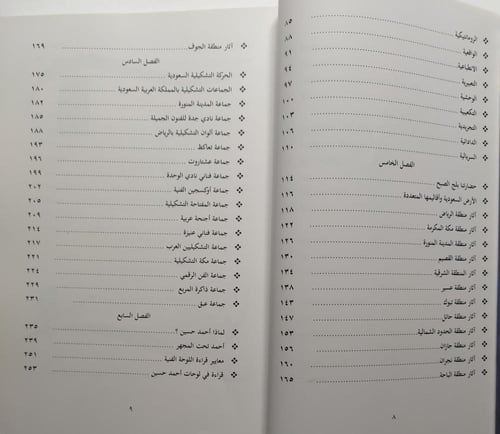 ❖ الرومانتيكية ٨٥
❖ الواقعية ٨٨
❖ الانطباعية ٩١
❖ التعبيرية ٩٤
❖ الوحشية ٩٧
❖ التكعيبية ١٠٠
❖ التجريدية ١٠٣
❖ الدادائية ١٠٦
❖ السريالية ١١٠
الفصل الخامس
❖ حضارتنا بلج الصبح ١١٤
❖ الأرض السعودية وأقاليمها المتعددة ١١٦
❖ آثار منطقة الرياض ١١٨
❖ آثار منطقة مكة المكرمة ١٢٢
❖ آثار منطقة المدينة المنورة ١٢٦
❖ آثار منطقة القصيم ١٣٠
❖ آثار المنطقة الشرقية ١٣٤
❖ آثار منطقة عسير ١٣٨
❖ آثار منطقة تبوك ١٤٣
❖ آثار منطقة حائل ١٤٧
❖ آثار منطقة الحدود الشمالية ١٥٣
❖ آثار منطقة جازان ١٥٦
❖ آثار منطقة نجران ١٦٠
❖ آثار منطقة الباحة ١٦٥
٨
❖ آثار منطقة الجوف ١٦٩
الفصل السادس
❖ الحركة التشكيلية السعودية ١٧٥
❖ الجماعات التشكيلية بالمملكة العربية السعودية ١٨٠
❖ جماعة المدينة المنورة ١٨٢
❖ جماعة نادي جدة للفنون الجميلة ١٨٥
❖ جماعة ألوان التشكيلية بالرياض ١٨٨
❖ جماعة تعاكظ ١٩٣
❖ جماعة عشتاروت ١٩٦
❖ جماعة فناني نادي الوحدة ١٩٩
❖ جماعة أوكسجين الفنية ٢٠٢
❖ جماعة المفتاحة التشكيلية ٢٠٥
❖ جماعة أجنحة عربية ٢٠٩
❖ جماعة فناني عنيزة ٢١٤
❖ جماعة التشكيليين العرب ٢١٧
❖ جماعة مكة التشكيلية ٢٢١
❖ جماعة الفن الرقمي ٢٢٤
❖ جماعة ذاكرة المربع ٢٢٩
❖ جماعة عبق ٢٣١
الفصل السابع
❖ لماذا أحمد حسين ؟ ٢٣٥
❖ أحمد تحت المجهر ٢٣٩
❖ معايير قراءة اللوحة الفنية ٢٥١
❖ قراءة في لوحات أحمد حسين ٢٥٣
٩